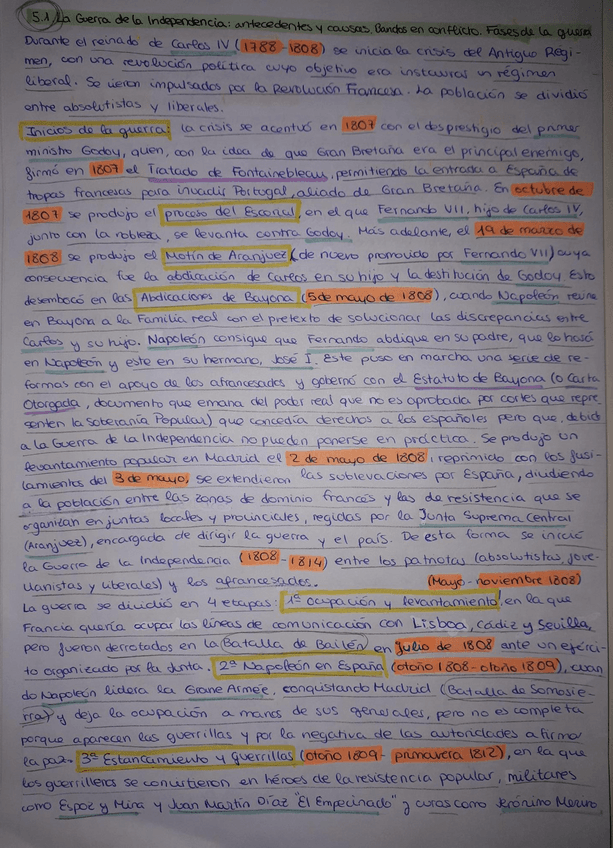 5.1 La Guerra de la Independencia: antecedentes y causas. Bandos en conflicto. Fases de la guerra
Durante el reinado de Carlos IV (1788-1808) se inicia la crisis del Antiguo Régi-
men, con una revolución política cuyo objetivo era instaurar un régimen
liberal. Se vieron impulsados por la Revolución Francesa. La población se dividió
entre absolutistas y liberales.
Inicios de la guerra: la crisis se acentuó en 1807 con el desprestigio del primer
ministro Godoy, quien, con la idea de que Gran Bretaña era el principal enemigo,
firmó en 1807 el Tratado de Fontainebleau, permitiendo la entrada a España de
tropas francesas para invadir Portugal, aliado de Gran Bretaña. En octubre de
1807 se produjo el proceso del Escorial, en el que Fernando VII, hijo de Carlos IV,
junto con la nobleza, se levanta contra Godoy. Más adelante, el 19 de marzo de
1808 se produjo el Motín de Aranjuez (de nuevo promovido por Fernando VII) cuya
consecuencia fue la abdicación de Carlos en su hijo y la destitución de Godoy. Esto
desembocó en las Abdicaciones de Bayona (5 de mayo de 1808), cuando Napoleón reúne
en Bayona a la Familia real con el pretexto de solucionar las discrepancias entre
Carlos y su hijo. Napoleón consigue que Fernando abdique en su padre, que lo hará
en Napoleón y este en su hermano, José I. Este puso en marcha una serie de re-
formas con el apoyo de los afrancesados y gobernó con el Estatuto de Bayona (o Carta
Otorgada, documento que emana del poder real que no es aprobada por cortes que repre
senten la soberanía Popular) que concedía derechos a los españoles pero que, debido
a la Guerra de la Independencia no pueden ponerse en práctica. Se produjo un
levantamiento popular en Madrid el 2 de mayo de 1808, reprimido con los fusi-
lamientos del 3 de mayo, se extendieron las sublevaciones por España, dividiendo
a la población entre las zonas de dominio francés y las de resistencia que se
organizan en juntas locales y provinciales, regidas por la Junta Suprema Central
(Aranjuez), encargada de dirigir la guerra y el país. De esta forma se inició
la Guerra de la Independencia (1808-1814) entre los patriotas (absolutistas, jove-
llanistas y liberales) y los afrancesados. (Mayo-noviembre 1808)
La guerra se dividió en 4 etapas: 1ª Ocupación y levantamiento, en la que
Francia quería ocupar las líneas de comunicación con Lisboa, Cádiz y Sevilla,
pero fueron derrotados en la Batalla de Bailén en julio de 1808 ante un ejérci-
to organizado por la Junta. 2ª Napoleón en España (otoño 1808-otoño 1809), cuan
do Napoleón lidera la Grane Armée, conquistando Madrid (Batalla de Somosie-
rra) y deja la ocupación a manos de sus generales, pero no es completa
porque aparecen las guerrillas y por la negativa de las autoridades a firmar
la paz. 3ª Estancamiento y guerrillas (otoño 1809-primavera 1812), en la que
los guerrilleros se convirtieron en héroes de la resistencia popular, militares
como Espoz y Mina y Juan Martín Díaz "El Empecinado" y curas como Jerónimo Merino